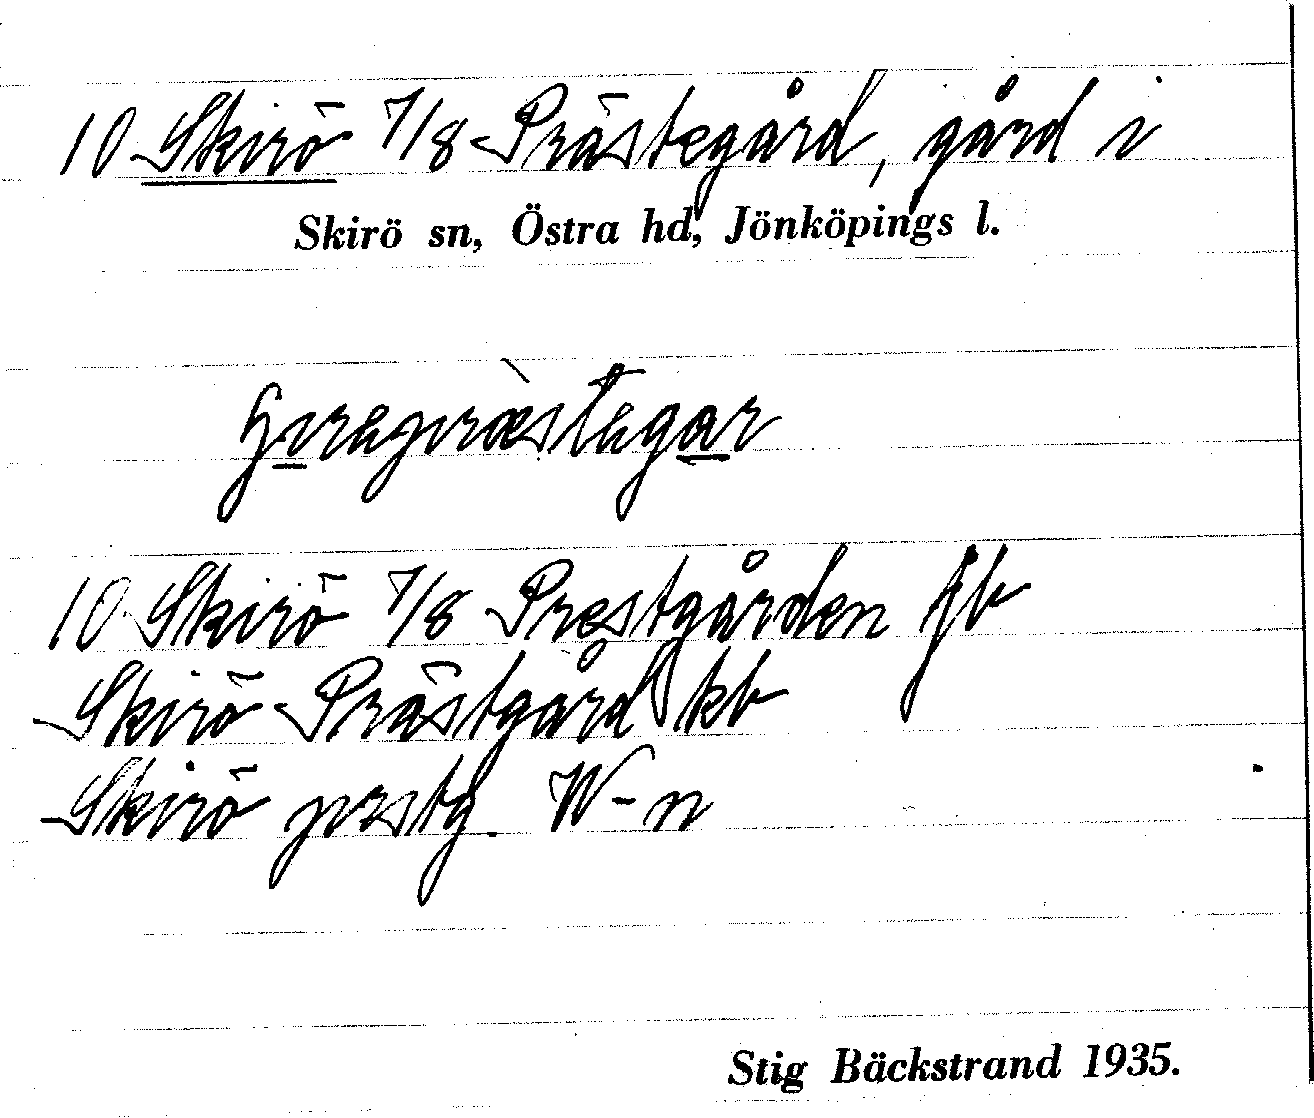 10 Skirö 7/8 Prästegård, gård i
Skirö sn, Östra hd, Jönköpings l.
10 Skirö 7/8 Prestgården jb
Skirö Prästgård kb
Skirö prstg. W-n
Stig Bäckstrand 1935.